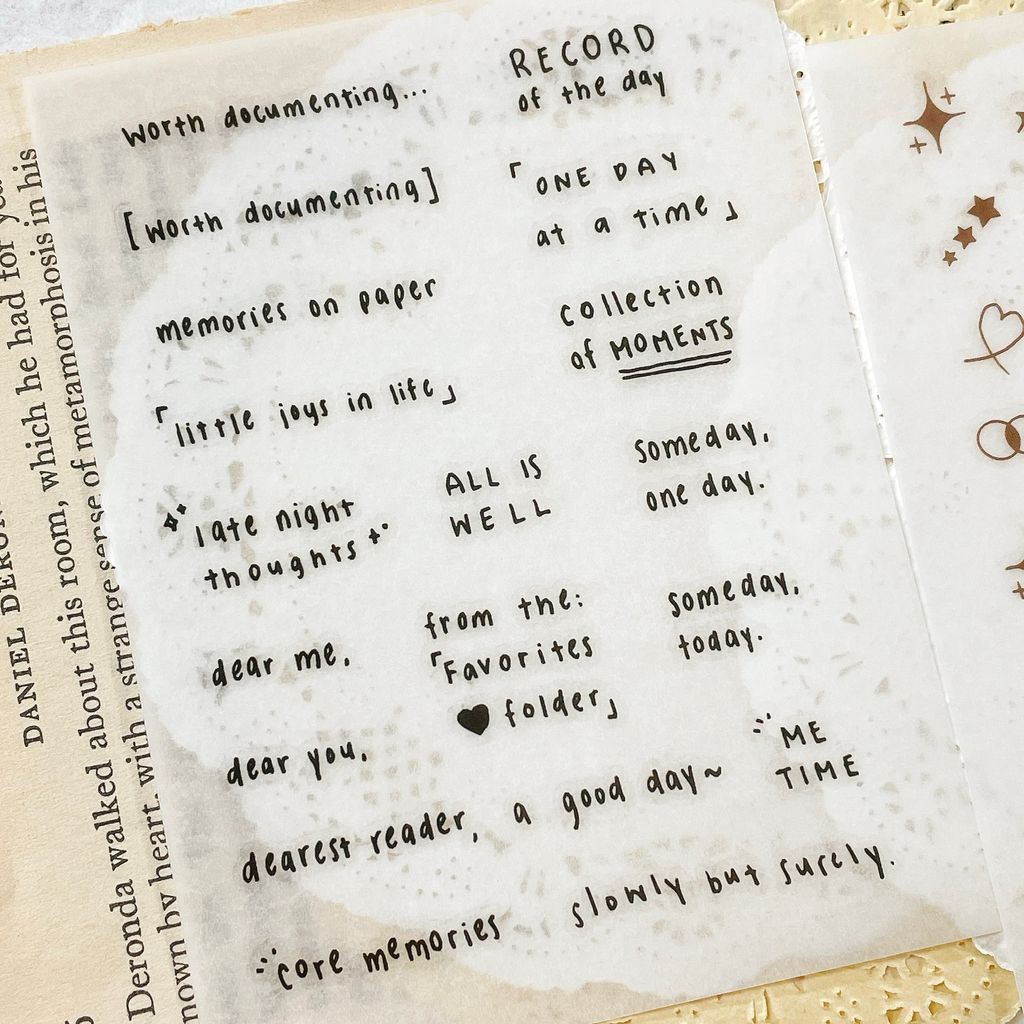 worth documenting...
RECORD
of the day
[worth documenting]
「ONE DAY
at a time」
memories on paper
collection
of MOMENTS
「little joys in life」
late night
thoughts
ALL IS
WELL
someday,
one day.
dear me,
from the:
「Favorites
♥ folder」
someday,
today.
dear you,
ME
TIME
dearest reader,
a good day~
core memories
slowly but surely.
DANIEL
Deronda walked about this room, which he had for
nown by heart, with a strange sense of metamorphosis in his